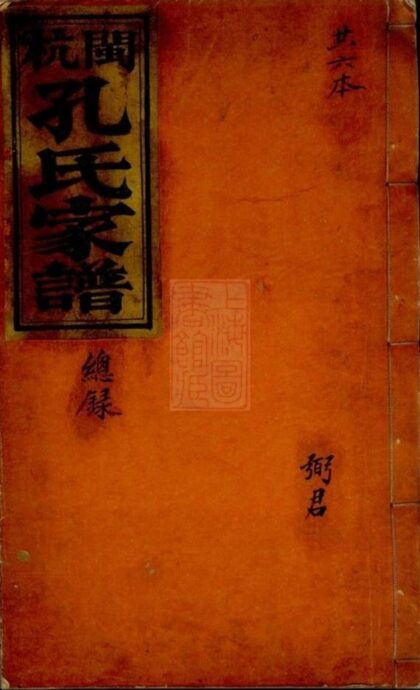 共六本
閩杭
孔氏家譜
總録
弼君
上海圖
書館藏